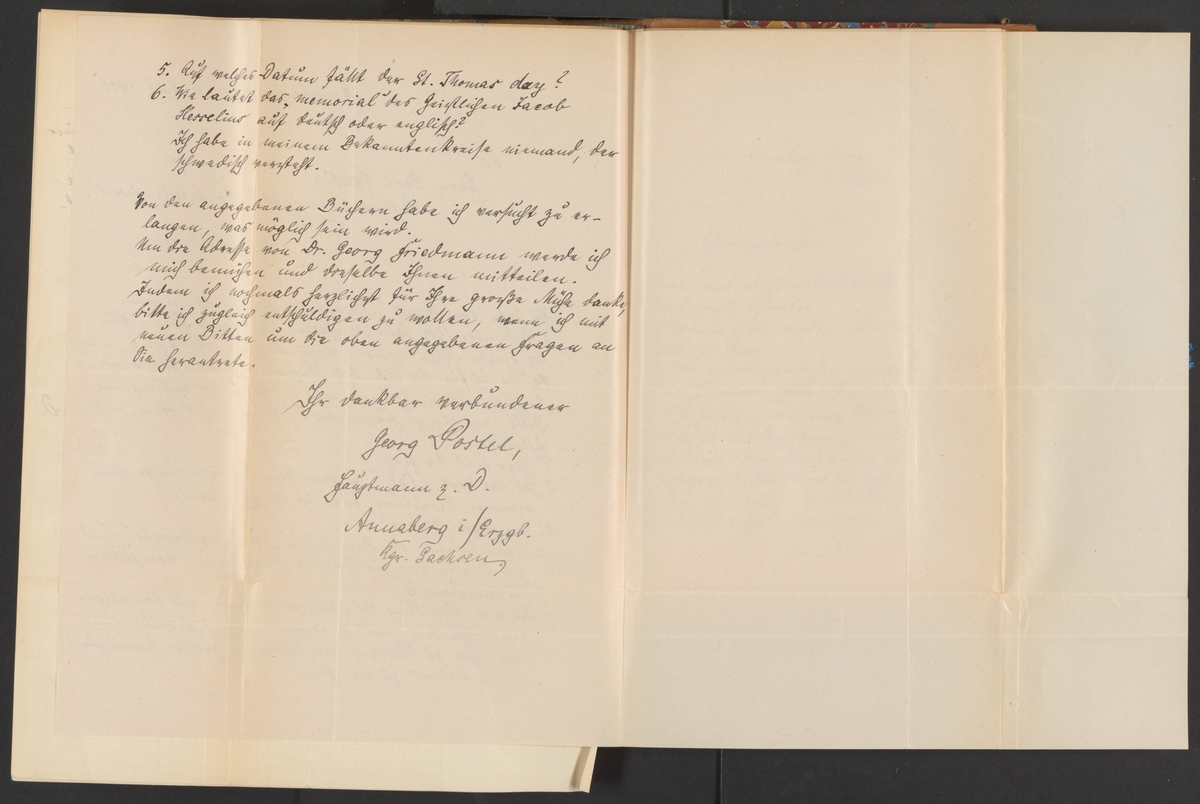 5. Auf welches Datum fällt der St. Thomas day?
6. Wie lautet das „memorial" des Geistlichen Jacob
Hesselius auf deutsch oder englisch?
Ich habe in meinem Bekanntenkreise niemand, der
schwedisch versteht.
Von den angegebenen Büchern habe ich versucht zu er-
langen, was möglich sein wird.
Um die Adresse von Dr. Georg Friedmann werde ich
mich bemühen und dieselbe Ihnen mitteilen.
Indem ich nochmals herzlichst für Ihre große Mühe danke,
bitte ich zugleich entschuldigen zu wollen, wenn ich mit
neuen Bitten um die oben angegebenen Fragen an
Sie herantrete.
Ihr dankbar verbundener
Georg Postel,
Hauptmann z. D.
Annaberg i/Erzgb.
Kgr. Sachsen.